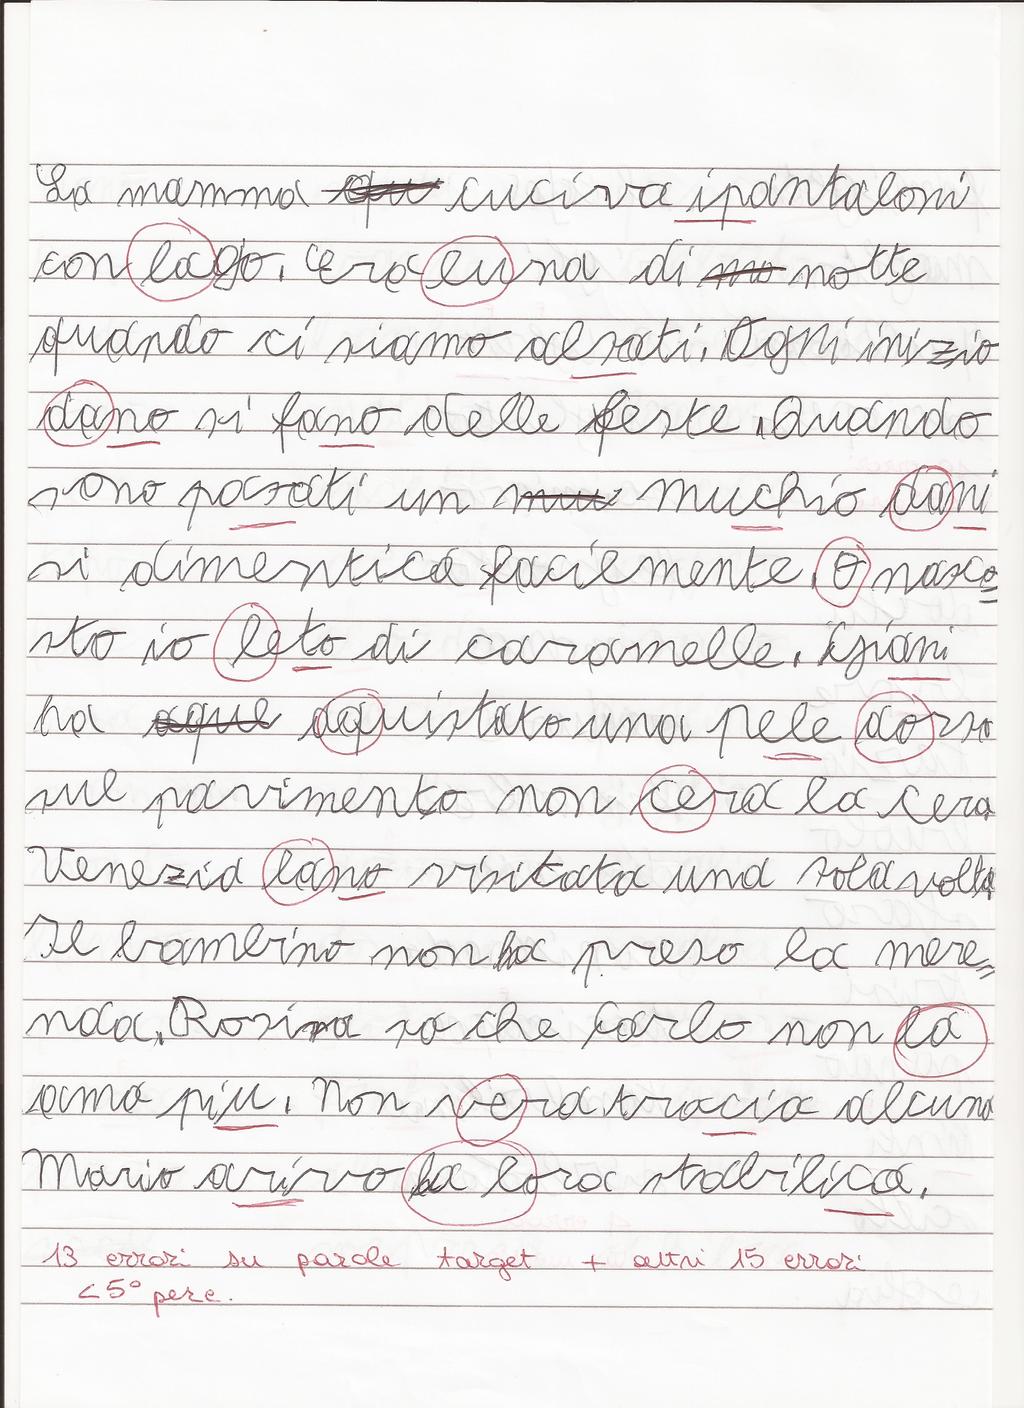 La mamma cuciva ipantaloni
con lago. Cera luna di notte
quando ci siamo alsati. Ogni inizio
dano si fano delle feste. Quando
sono pasati un muchio dani
si dimentica facilmente. O nasco
sto io leto di caramelle. Igiani
ha aquistato una pele dorso
sul pavimento non cera la cera
Venezia lano visitata una sola volta
Il bambino non ha preso la mere=
nda. Rosina sa che Carlo non la
ama piu. Non vera tracia alcuna
Mario arivo ha lora stabilica.
13 errori su parole target + altri 15 errori
<5° perc.